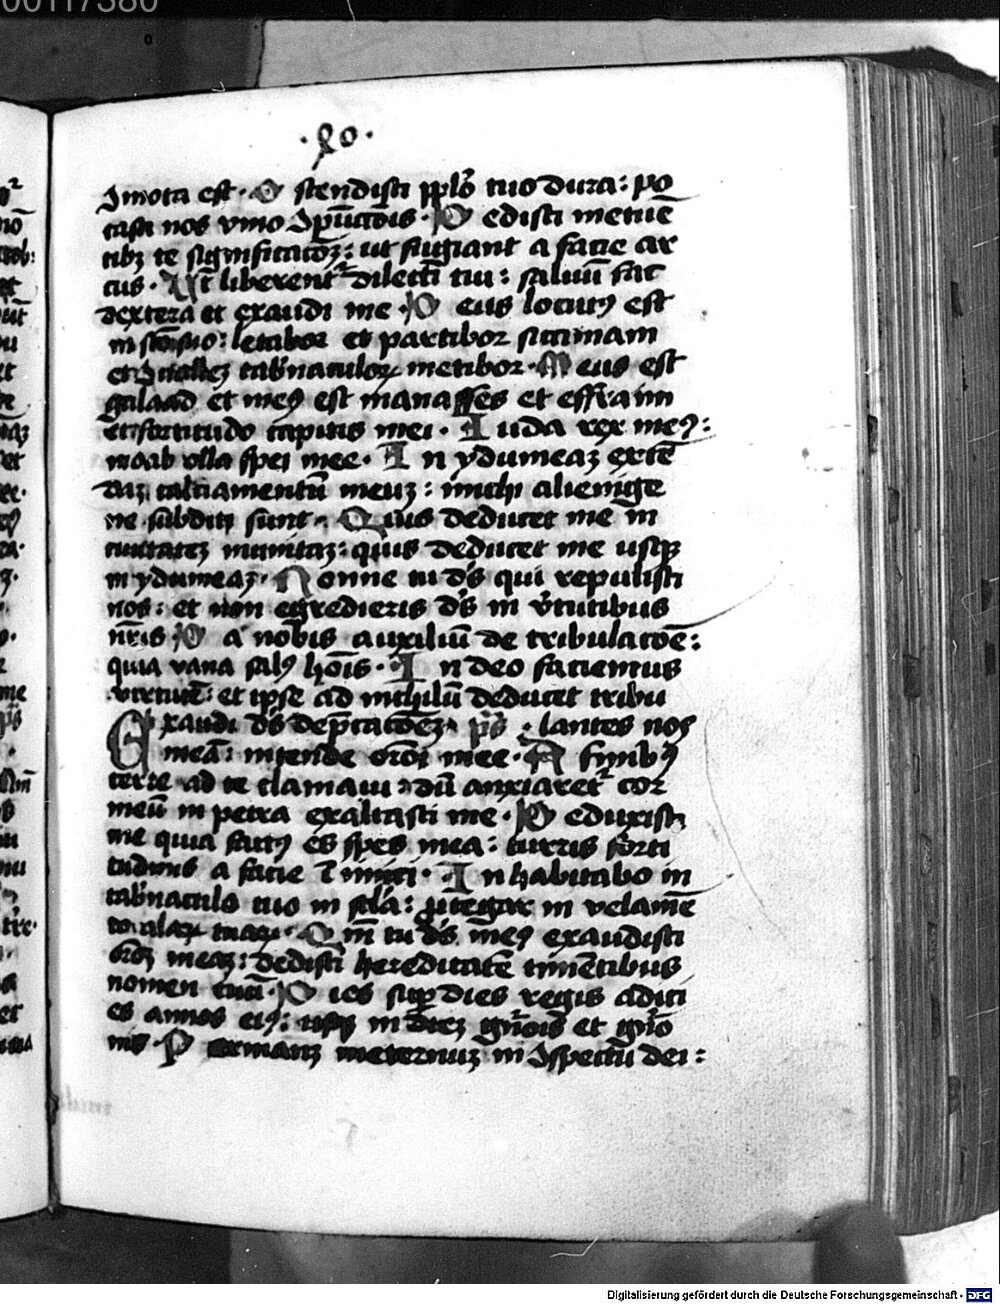 00117380
·lo·
Jmota est· O stendisti pplō tuo dura: po
tasti nos vino 9pūctōis· D edisti metuē
tibꝫ te significatōeꝫ: ut fugiant a facie ar
cus· Ut liberentᷣ dilecti tui: saluū fac
dextera et exaudi me D eus locutꝰ est
in sctō suo: letabor et partibor siccimam
et 9uallē tab'naculoꝝ metibor· M eus est
galaad et meꝰ est manasses et effraim
et fortitudo capitis mei· I uda rex meꝰ:
moab olla spei mee· I n ydumeaꝫ extē
daꝫ calciamentū meuꝫ: michi alienige
ne subditi sunt· Q uis deducet me in
ciuitateꝫ munitaꝫ: quis deducet me usqꝫ
in ydumeaꝫ· N onne tu ds̄ qui repulisti
nos: et non egredieris ds̄ in v'tutibus
nr̄is D a nobis auxiliū de tribulatōe:
quia vana salꝰ hoīs· I n deo faciemus
virtutē: et ip̄e ad nichilū deducet tribu
Exaudi ds̄ dep̄catōeꝫ p̄s lantes nos
meā: intende orōi mee· A finibꝰ
terre ad te clamaui dū anxiaretᷣ cor
meū in petra exaltasti me· D eduxisti
me quia factꝰ es spes mea: turris forti
tudinis a facie inimici· I nhabitabo in
tab'naculo tuo in scl̄a: ꝓtegar in velamē
to alaꝝ tuaꝝ· Q m̄ tu ds̄ meꝰ exaudisti
orōeꝫ meaꝫ: dedisti hereditatē timētibus
nomen tuū· D ies suꝑ dies regis adici
es annos eiꝰ: usqꝫ in dieꝫ gn̄ois et gn̄o
nis· P ermanꝫ ineternuꝫ in 9spectū dei:
Digitalisierung gefördert durch die Deutsche Forschungsgemeinschaft · DFG